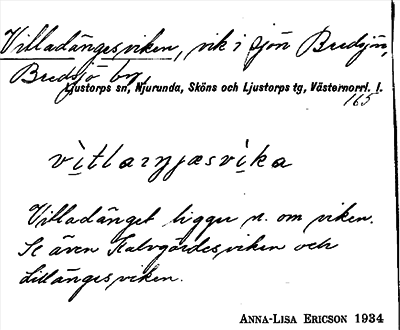 Villadängesviken, vik i sjön Bredsjön,
Bredsjö by,
Ljustorps sn, Njurunda, Sköns och Ljustorps tg, Västernorrl. l.
165
Villadänget ligger n. om viken.
Se även Kalvgärdesviken och
Lillängesviken.
ANNA-LISA ERICSON 1934